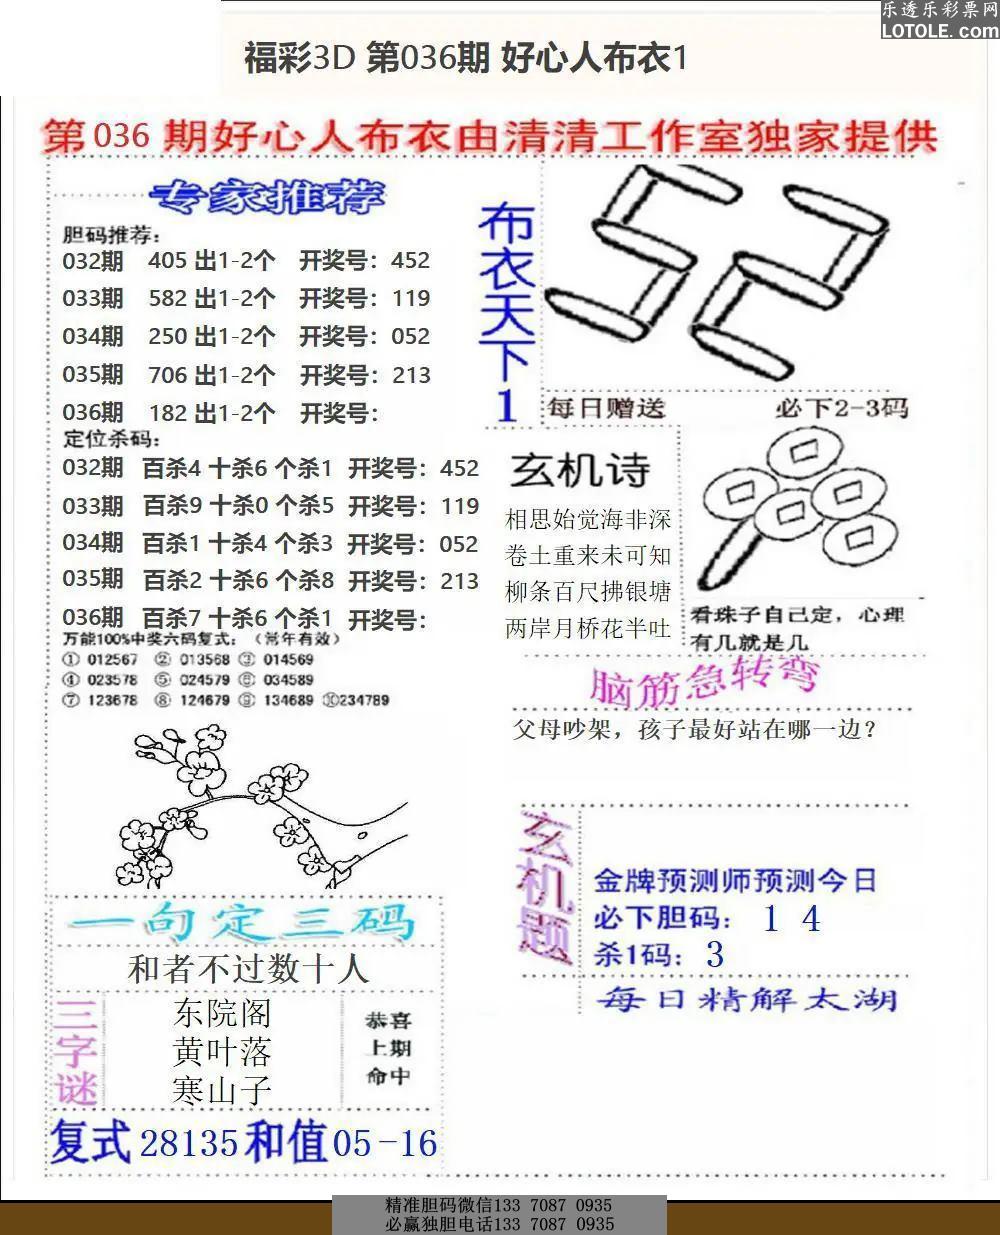 乐透乐彩票网
LOTOLE.com
福彩3D 第036期 好心人布衣1
第 036 期好心人布衣由清清工作室独家提供
专家推荐
胆码推荐：
032期 405 出1-2个 开奖号：452
033期 582 出1-2个 开奖号：119
034期 250 出1-2个 开奖号：052
035期 706 出1-2个 开奖号：213
036期 182 出1-2个 开奖号：
定位杀码：
032期 百杀4 十杀6 个杀1 开奖号：452
033期 百杀9 十杀0 个杀5 开奖号：119
034期 百杀1 十杀4 个杀3 开奖号：052
035期 百杀2 十杀6 个杀8 开奖号：213
036期 百杀7 十杀6 个杀1 开奖号：
万能100%中奖六码复式：（常年有效）
① 012567 ② 013568 ③ 014569
④ 023578 ⑤ 024579 ⑥ 034589
⑦ 123678 ⑧ 124679 ⑨ 134689 ⑩234789
一句定三码
和者不过数十人
三字谜
东院阁
黄叶落
寒山子
恭喜
上期
命中
复式 28135 和值 05-16
布衣天下1
52
每日赠送 必下2-3码
玄机诗
相思始觉海非深
卷土重来未可知
柳条百尺拂银塘
两岸月桥花半吐
看珠子自己定，心理
有几就是几
脑筋急转弯
父母吵架，孩子最好站在哪一边？
玄机题
金牌预测师预测今日
必下胆码： 1 4
杀1码： 3
每日精解太湖
精准胆码微信133 7087 0935
必赢独胆电话133 7087 0935